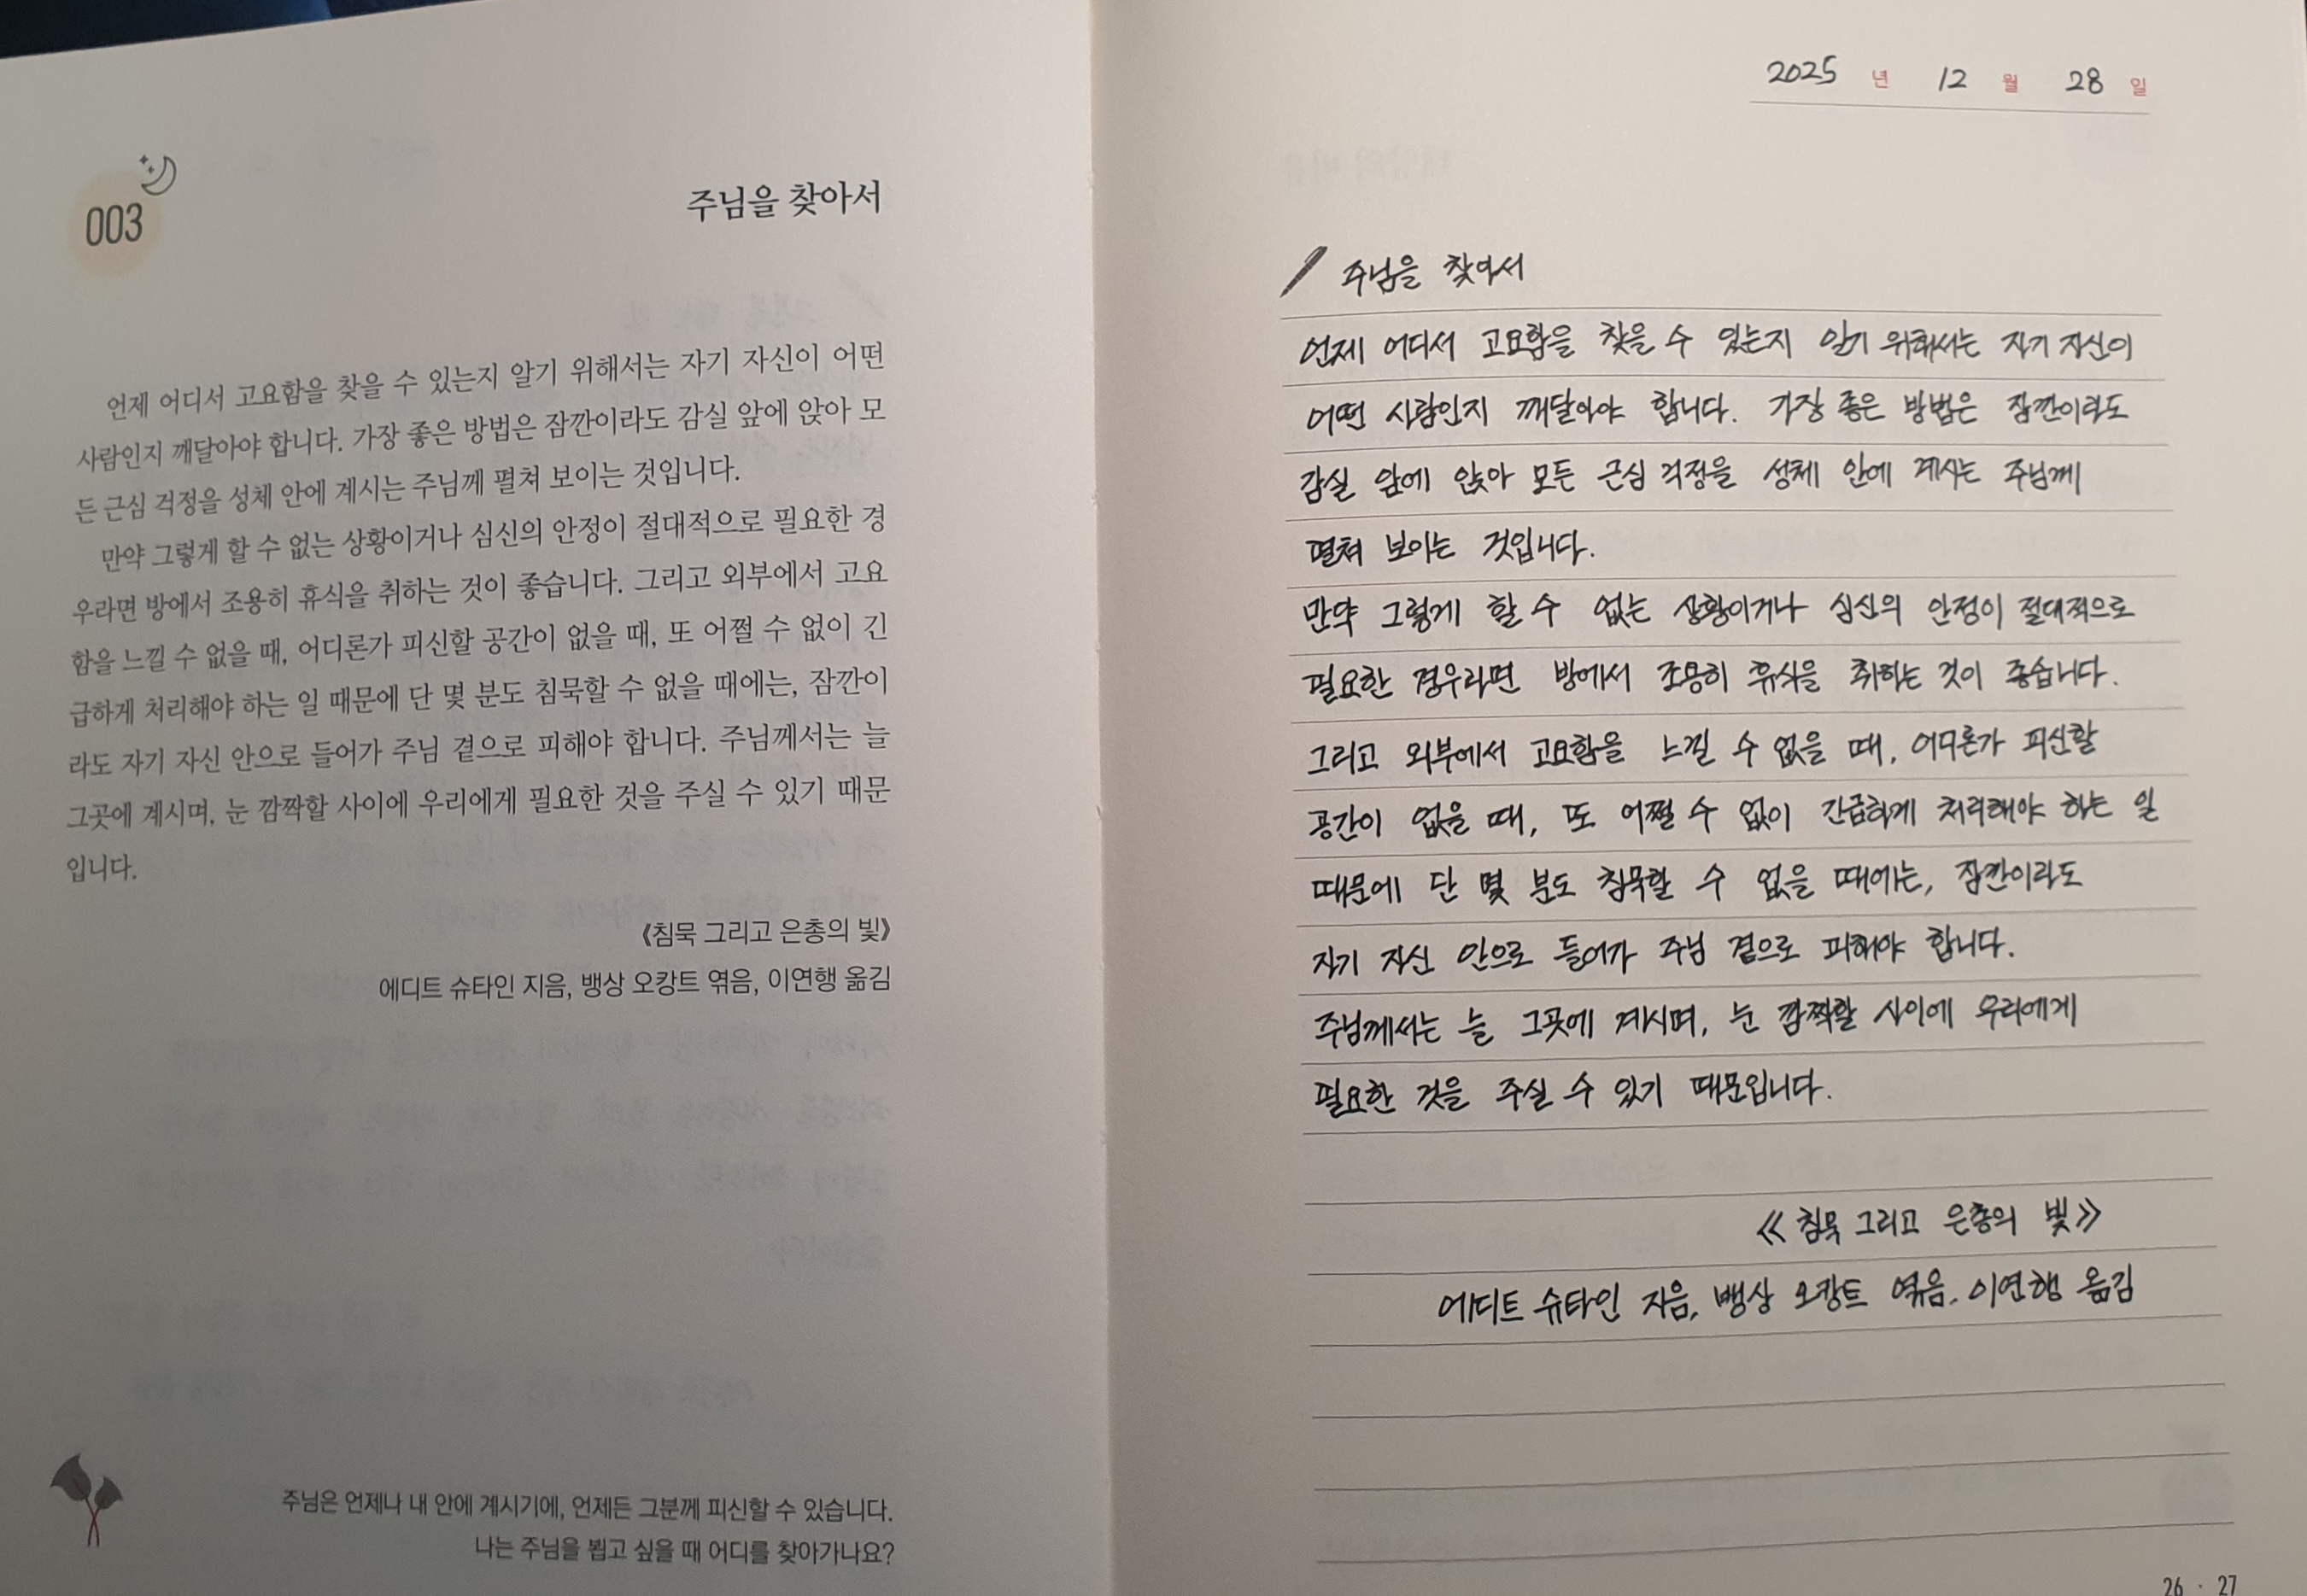 003
주님을 찾아서
언제 어디서 고요함을 찾을 수 있는지 알기 위해서는 자기 자신이 어떤
사람인지 깨달아야 합니다. 가장 좋은 방법은 잠깐이라도 감실 앞에 앉아 모
든 근심 걱정을 성체 안에 계시는 주님께 펼쳐 보이는 것입니다.
만약 그렇게 할 수 없는 상황이거나 심신의 안정이 절대적으로 필요한 경
우라면 방에서 조용히 휴식을 취하는 것이 좋습니다. 그리고 외부에서 고요
함을 느낄 수 없을 때, 어디론가 피신할 공간이 없을 때, 또 어쩔 수 없이 긴
급하게 처리해야 하는 일 때문에 단 몇 분도 침묵할 수 없을 때에는, 잠깐이
라도 자기 자신 안으로 들어가 주님 곁으로 피해야 합니다. 주님께서는 늘
그곳에 계시며, 눈 깜짝할 사이에 우리에게 필요한 것을 주실 수 있기 때문
입니다.
《침묵 그리고 은총의 빛》
에디트 슈타인 지음, 뱅상 오캉트 엮음, 이연행 옮김
주님은 언제나 내 안에 계시기에, 언제든 그분께 피신할 수 있습니다.
나는 주님을 뵙고 싶을 때 어디를 찾아가나요?
2025 년 12 월 28 일
주님을 찾아서
언제 어디서 고요함을 찾을 수 있는지 알기 위해서는 자기 자신이
어떤 사람인지 깨달아야 합니다. 가장 좋은 방법은 잠깐이라도
감실 앞에 앉아 모든 근심 걱정을 성체 안에 계시는 주님께
펼쳐 보이는 것입니다.
만약 그렇게 할 수 없는 상황이거나 심신의 안정이 절대적으로
필요한 경우라면 방에서 조용히 휴식을 취하는 것이 좋습니다.
그리고 외부에서 고요함을 느낄 수 없을 때, 어디론가 피신할
공간이 없을 때, 또 어쩔 수 없이 긴급하게 처리해야 하는 일
때문에 단 몇 분도 침묵할 수 없을 때에는, 잠깐이라도
자기 자신 안으로 들어가 주님 곁으로 피해야 합니다.
주님께서는 늘 그곳에 계시며, 눈 깜짝할 사이에 우리에게
필요한 것을 주실 수 있기 때문입니다.
《침묵 그리고 은총의 빛》
에디트 슈타인 지음, 뱅상 오캉트 엮음. 이연행 옮김
26 · 27